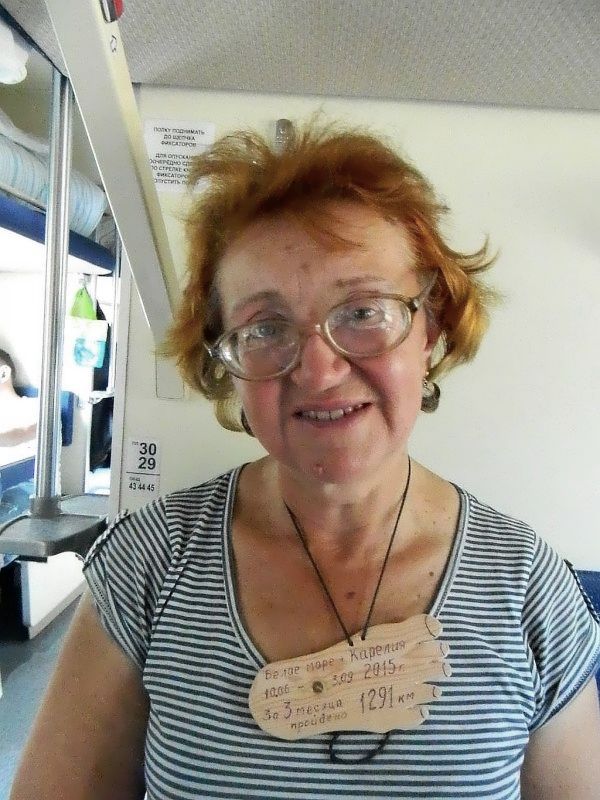 ПОЛКУ ПОДНИМАТЬ
ДО ЩЕЛЧКА
ФИКСАТОРОВ
ДЛЯ ОПУСКАН
ПО СТРЕЛКЕ
ФИКСАТОРО
30
29
43 44 45
Белое море + Карелия
10.06 - 3.09 2015 г.
За 3 месяца 1291 км
пройдено